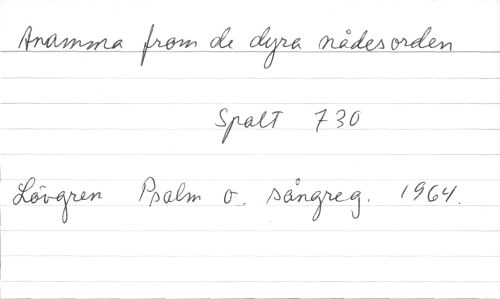 Anamma from de dyra nådesorden
Spalt 730
Lövgren Psalm o. sångreg. 1964.